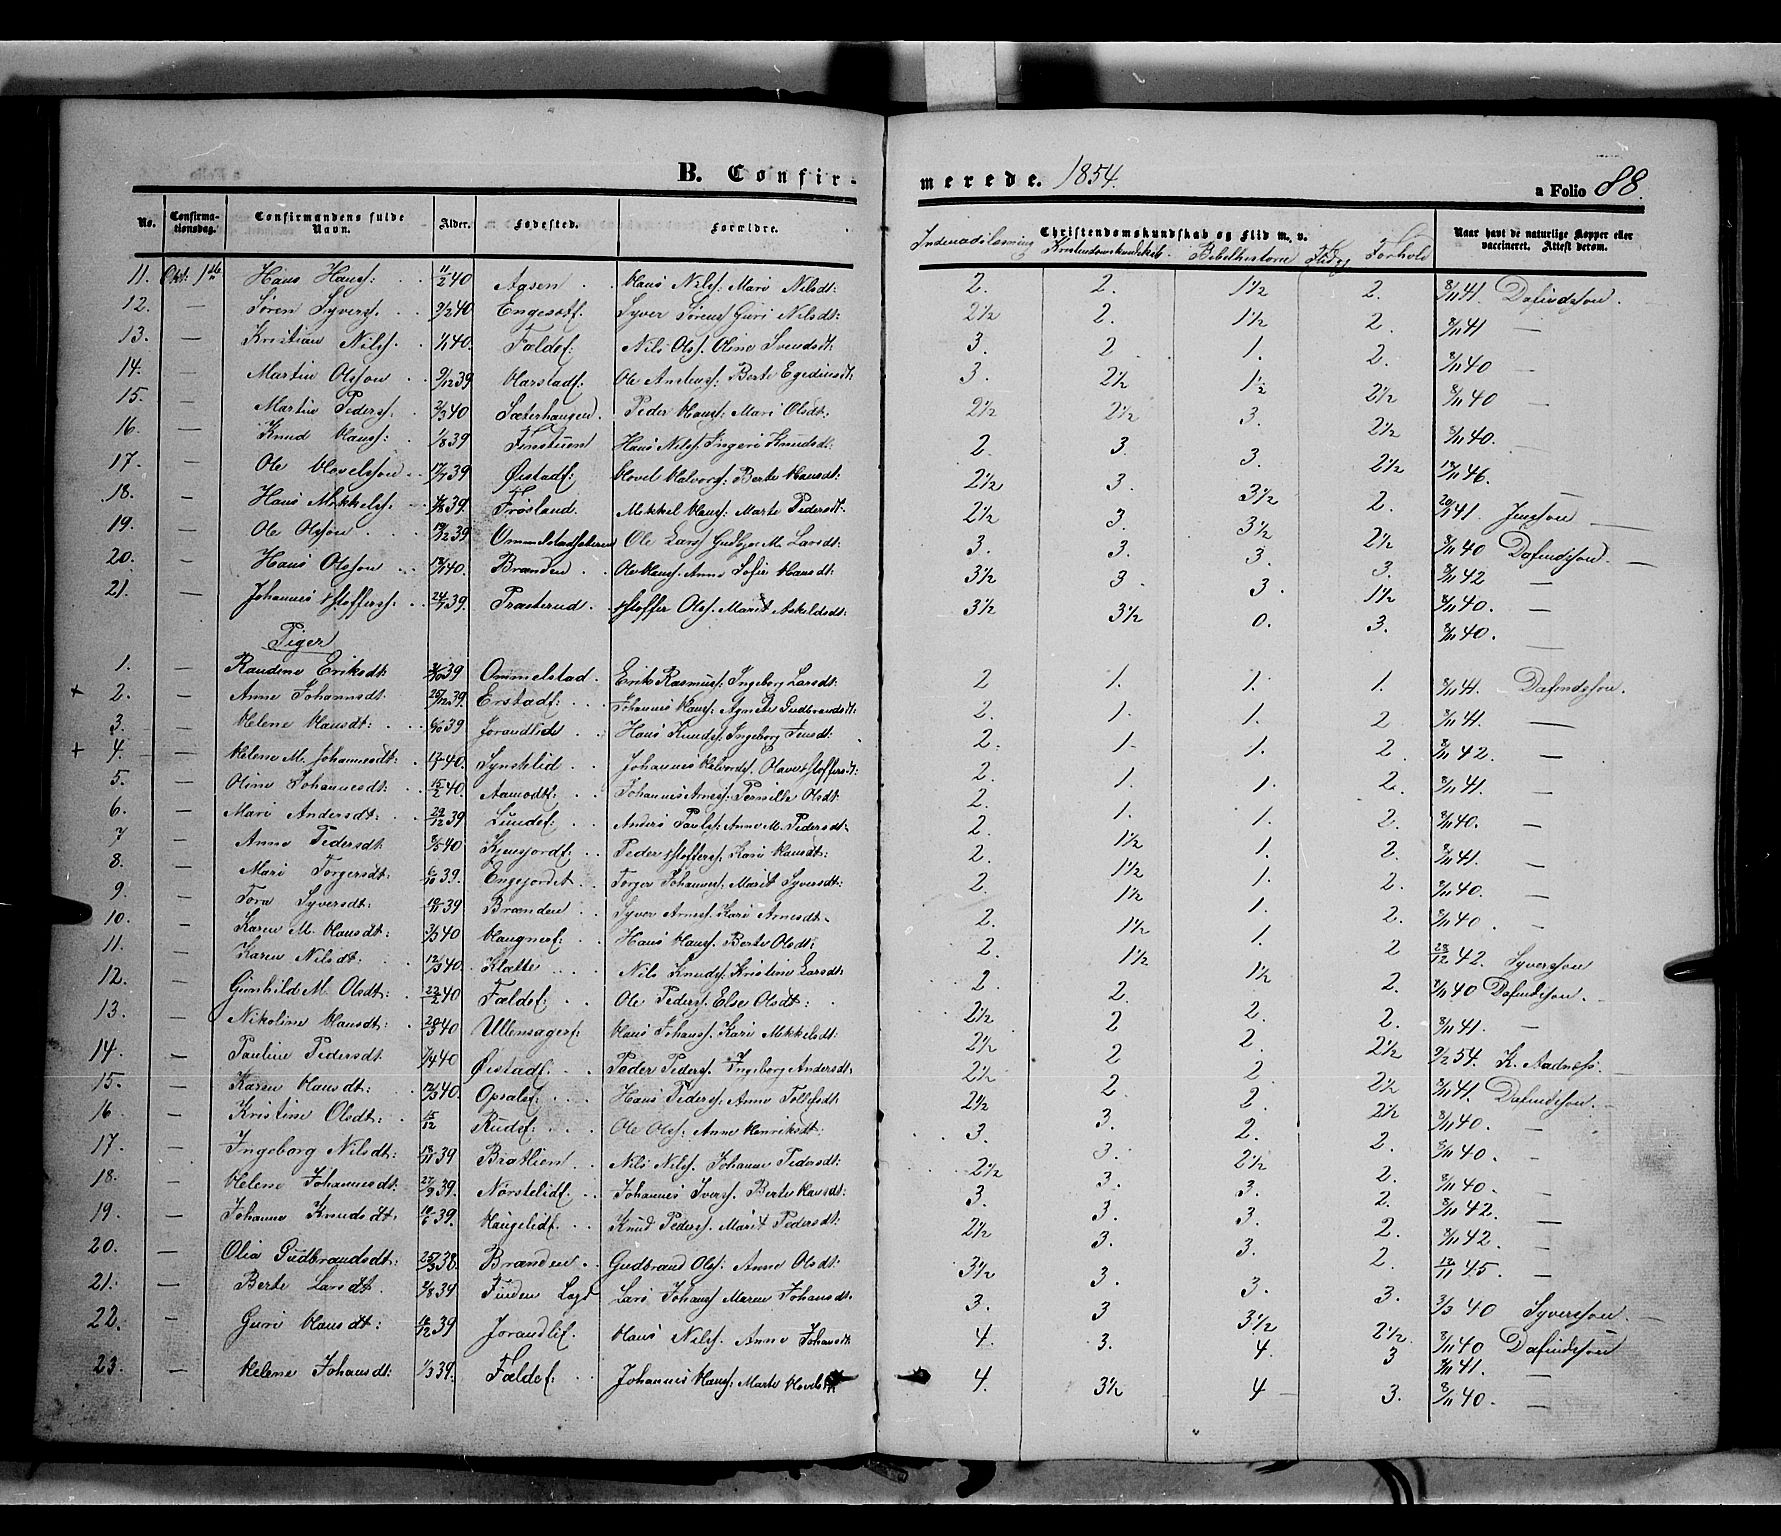 B. Confirmerede. 1854. a Folio 88.
No. Confirmationsdag. Confirmandens fulde Navn. Alder. Fødested. Forældre. Indenadslæsning Christendomskundskab og Flid m. v. Kristendomskundskab. Bibelhistorie Flid og Forhold Naar havt de naturlige Kopper eller vaccineret. Attest derom.
11. Okt. 1ste Hans Hansf: 11/2 40 Aasen Hans Nilsf. Mari Nilsdt: 2. 2. 1½ 2. 8/11 41. Dafindsson.
12. — Søren Syversf. 9/2 40 Engesætf. Syver Sørensf Guri Nilsdt: 2½ 2. 1½ 2. 8/11 41 —
13. — Kristian Nilsf. 1/1 40. Faldef. Nils Olsf. Oline Svendsdt: 3. 2 1. 2. 8/11 40 —
14. — Martin Olsson 9/12 39 Harstadf. Ole Andersf: Berte Egediusdt: 3. 2½ 1½ 2½ 8/11 40 —
15. — Martin Pedersf. 2/3 40 Sæterhaugen. Peder Hansf: Mari Olsdt: 2½ 2½ 3. 2½ 8/11 40. —
16. — Knud Hansf: 1/8 39 Finstuen Hans Nilsf. Ingeri Knudsdt: 2. 3. 3. 2½ 46.
17. — Ole Hovelsson 17/7 39 Øistadf: Hovel Halvorsf: Berte Hansdt: 2½ 3. 3½ 2. 41. Jensson —
18. — Hans Mikkelsf. 39. Frøsland. Mikkel Hansf: Marte Pedersdt. 2½ 3. 3½ 2½ 8/11 40 Dafindsson. —
19. — Ole Olsson 39 Ommelstadsæteren Ole Larsf M. Larsdt: 3. 3. 3. 3. 8/11 42 —
20. — Hans Olsson 40. Brænden Ole Hansf. Anne Sofie Hansdt: 3½ 3. 3. 1½ 8/11 40. —
21. — Johannes Stoffersf. 24/7 39. Prasterud. Stoffer Olsf. Marit Askildsdt: 3½ 3½ 0. 3. 8/11 40. —
Piger
1. — Randine Eriksdt: 39 Ommelstad. Erik Rasmusf: Ingeborg Larsdt: 2 1. 1. 1. 8/11 41. Dafindsson.
+ 2. — Anne Johannesdt: 25/12 39. Erstadf: Johannes Hansf: Agnete Gudbrandsdt: 2. 1. 1. 2 8/11 41. —
3. — Helene Hansdt: 6/10 39 Jorandlide Hans Knudsf. Ingeborg Jensdt: 2. 1. 1. 2 8/11 42. —
+ 4. — Helene M. Johannesdt: 40. Synstelid Johannes Halvorsf. Olave Stoffersdt: 2. 1. 1. 2. 8/11 41. —
5. — Oline Johannesdt: 15/2 40 Aamodt: Johannes Arnesf: Pernille Olsdt: 2. 1. 1. 2. 8/11 40. —
6. — Mari Andersdt: 29/12 39 Lundef. Anders Paulsf: Anne M. Pedersdt: 2. 1½ 1. 2. 8/11 41. —
7 — Anne Pedersdt: 8/5 40 Kjensjordf. Peder Stoffersf. Kari Hansdt: 2. 1½ 1. 2. 8/11 40. —
8. — Mari Torgersdt: 6/10 39. Engejordet Torger Johannesf: Marit Syversdt: 2. 1½ 1. 2. 8/11 40. —
9. — Tora Syversdt: 18/11 39 Brænden Syver Arnesf. Kari Arnesdt: 2. 1½ 1. 2 23/12 42. Syversson
10. — Karen M. Hansdt: 2/3 40 Haugnesf: Hans Hansf. Berte Olsdt: 2. 1½ 1½ 2. 8/11 40 Dafindsson.
11. — Karen Nilsdt: 12/3 40. Klætte Nils Knudsf: Kristine Larsdt: 2 2. 2. 2. 8/11 41. —
12. — Gunhild M. Olsdt: 22/2 40 Faldef. Ole Pedersf. Else Olsdt: 2½ 2 2. 2½ 9/2 54. K. Aadnesf.
13. — Nikoline Hansdt: 20/3 40 Ullensagerf: Hans Johansf: Kari Mikkelsdt: 2½ 2 2 2½ 8/11 41. Dafindsson.
14. — Pauline Pedersdt: 1/4 40 Øistadf: Peder Pedersf. Ingeborg Andersdt: 2½ 2. 2. 2½ 8/11 40. —
15. — Karen Hansdt: 12/3 40. Opsalef: Hans Pedersf: Anne Tollefsdt: 2½ 3. 2. 2. 8/11 40. —
16 — Kristine Olsdt: 15/12 Rudsf: Ole Olsf: Anne Henriksdt: 3. 3. 2½ 2. 8/11 40. —
17. — Ingeborg Nilsdt: 18/11 39 Bratlien Nils Nilsf. Johanne Pedersdt: 2½ 3. 3. 2. 8/11 42. —
18. — Helene Johannesdt: 27/9 39. Nørstelidf. Johannes Iversf. Berte Hansdt: 3. 3. 3. 2. 8/11 42. —
19. — Johanne Knudsdt: 10/6 39. Haugelidf. Knud Pedersf. Marit Pedersdt: 2½ 3. 3. 2. 45. —
20. — Olia Gudbrandsdt: 25/3 38. Brænden Gudbrand Olsf: Anne Olsdt: 3½ 3. 3. 3. 3/3 40 Syversson —
21. — Berte Larsdt. 2/8 39 Finden Lagd Lars Johansf Maren Johansdt: 3. 3 3½ 2½. 8/11 40 Dafindsson
22. — Guri Hansdt: 16/12 39 Jorandlif. Hans Nilsf. Anne Johansdt: 4. 3. 4. 3 8/11 41. —
23. — Helene Johansdt: 1/3 39. Faldef: Johannes Hansf: Marte Hovelsdt: 4. 3½ 4 3. 8/11 40. —